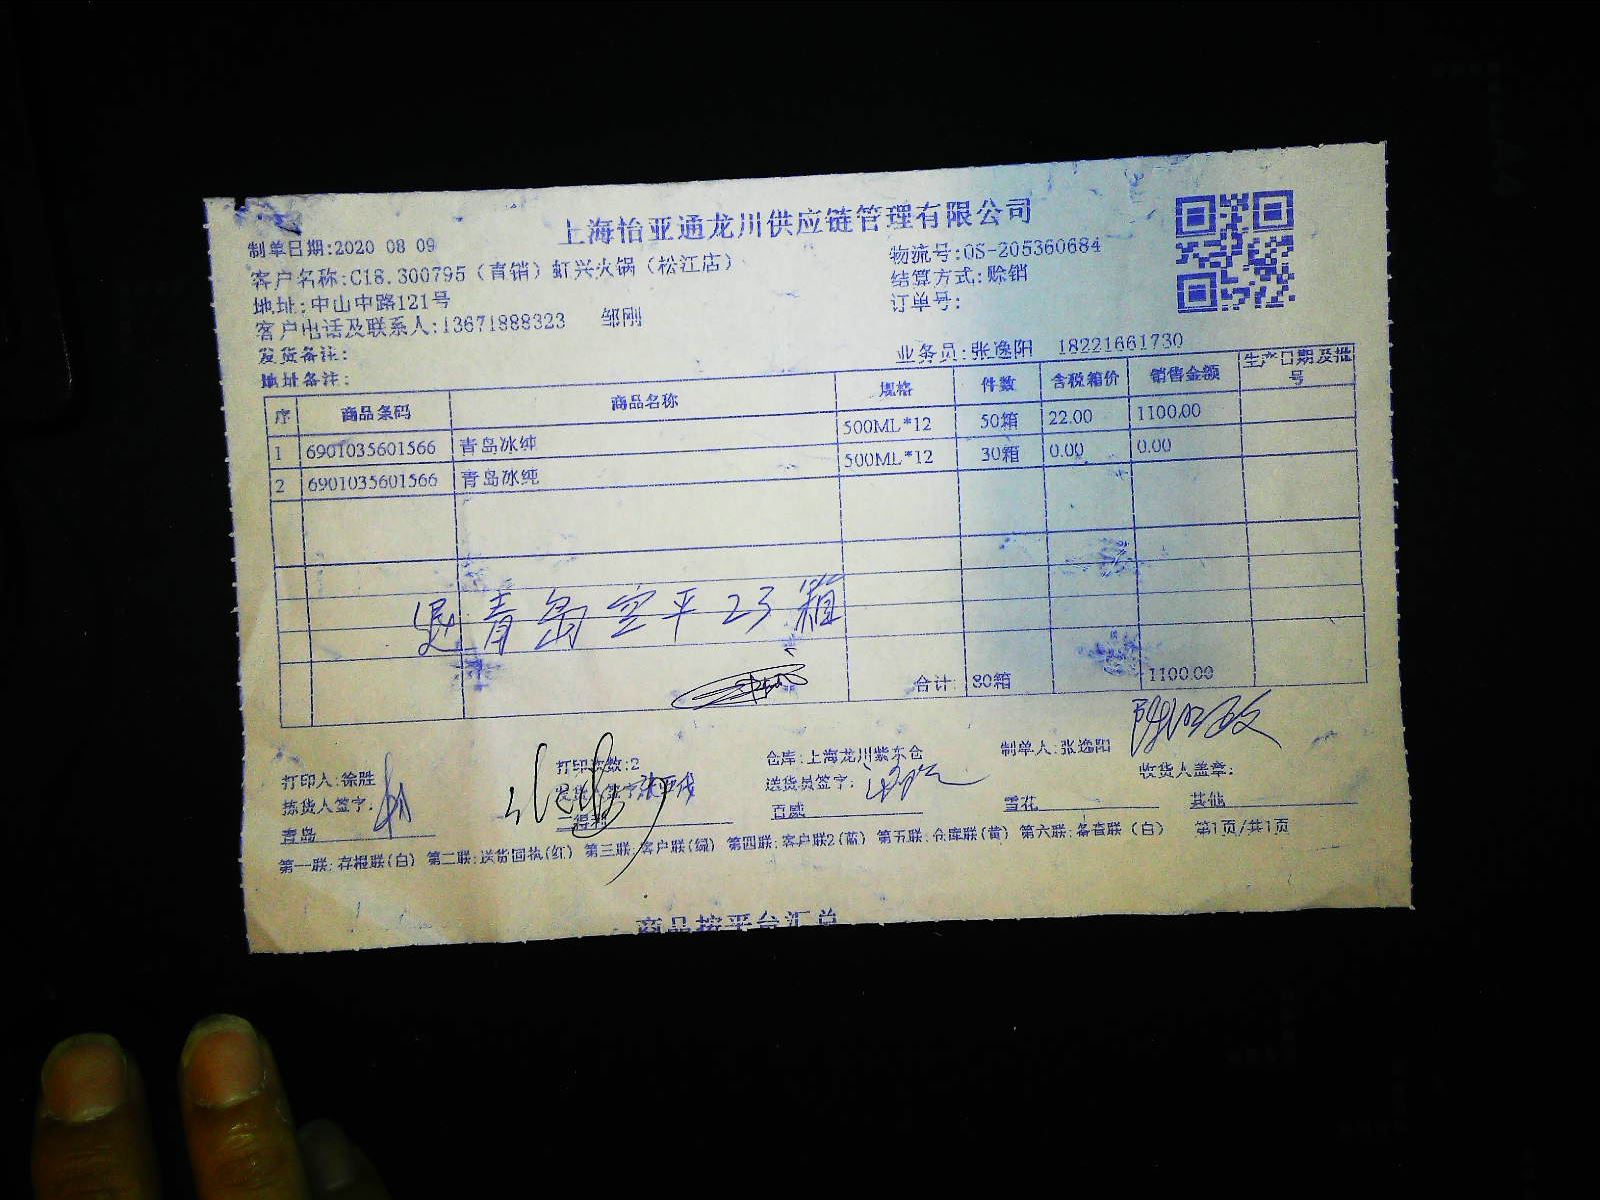 上海怡亚通龙川供应链管理有限公司
制单日期:2020 08 09
物流号:OS-205360684
客户名称:C18.300795（直销）虹兴火锅（松江店）
结算方式:赊销
地址:中山中路121号
订单号:
客户电话及联系人:13671888323 邹刚
发货备注:
业务员:张逸阳 18221661730
地址备注:
序 商品条码 商品名称 规格 件数 含税箱价 销售金额 生产日期及批号
1 6901035601566 青岛冰纯 500ML*12 50箱 22.00 1100.00
2 6901035601566 青岛冰纯 500ML*12 30箱 0.00 0.00
退青岛空平23箱
合计: 80箱 1100.00
打印人:徐胜 打印次数:2 仓库:上海龙川紫东仓 制单人:张逸阳
拣货人签字: 发货人签字: 送货员签字: 收货人盖章:
青岛 三得利 百威 雪花 其他
第一联:存根联(白) 第二联:送货回执(红) 第三联:客户联(绿) 第四联:客户联2(蓝) 第五联:仓库联(黄) 第六联:备查联（白） 第1页/共1页
商品按平台汇总